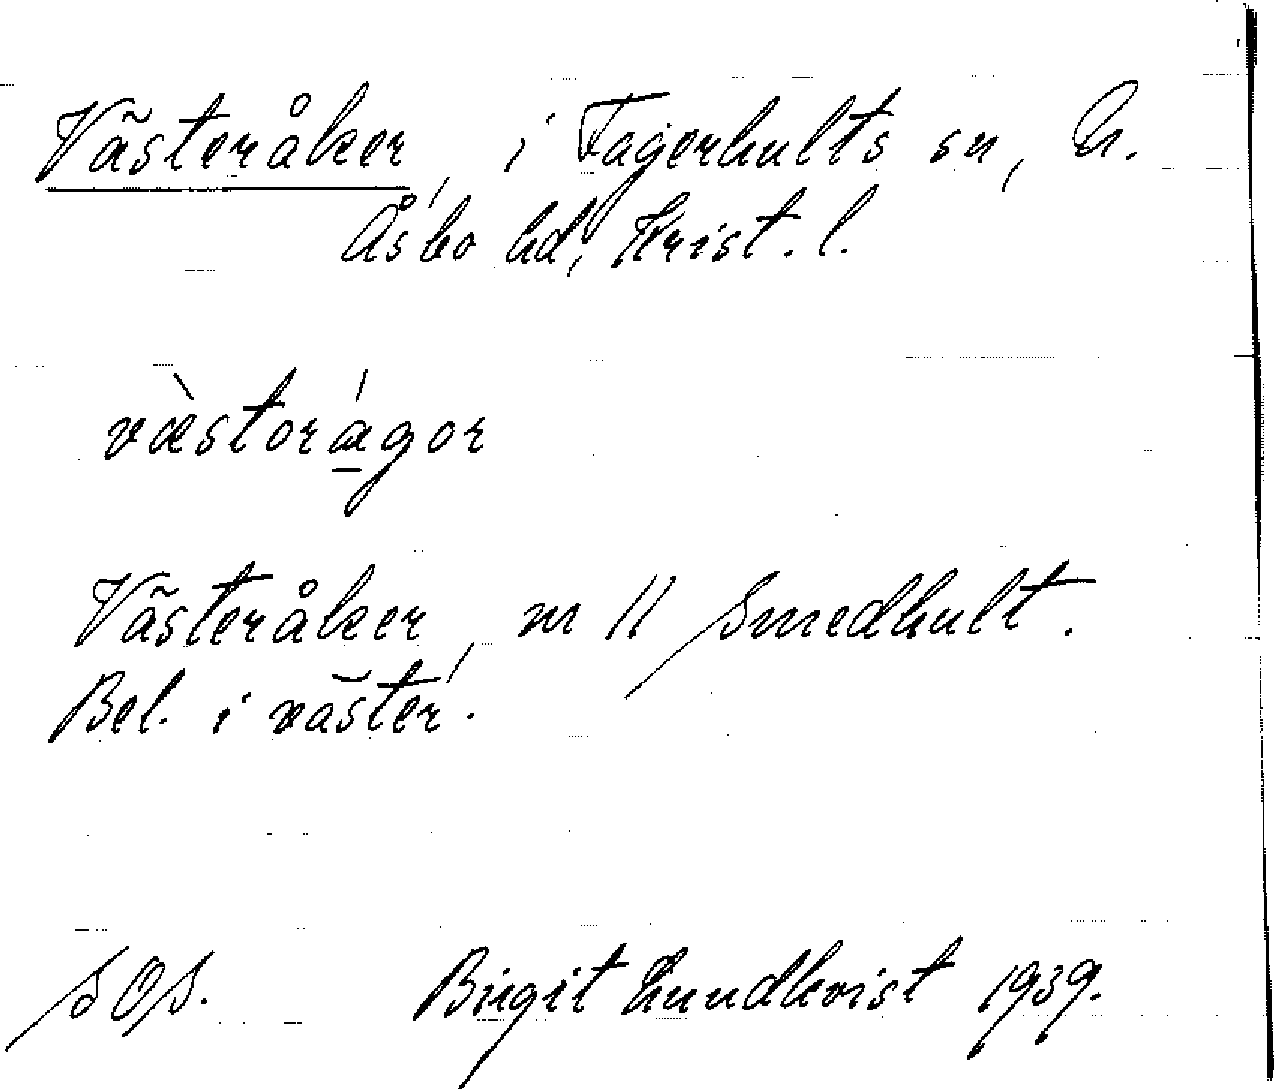 Västeråker, i Fagerhults sn, N.
Åsbo hd, Krist. l.
væ̀storágor
Västeråker, m 11 Smedhult.
Bel. i väster.
SOS. Birgit Lundkvist 1939.